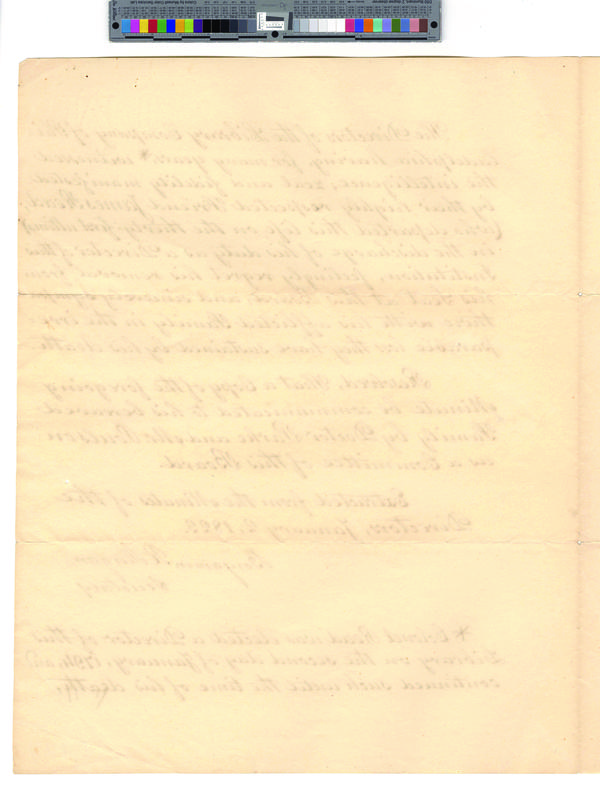 The Directors of the Library Company of this
having for many years* witnessed
the intelligence, zeal and fidelity manifested
by their highly respected Friend James Read,
(who departed this life on the thirty-first ultimo)
in the discharge of his duty as a Director of this
Institution, feelingly regret his removal from
his Seat at this Board, and sincerely sympa-
thise with his afflicted Family in the irre-
parable loss they have sustained by his death.
Resolved, That a Copy of the foregoing
Minute be communicated to his bereaved
Family by Doctor Parke and Mr Poulson
as a Committee of this Board.
Extracted from the Minutes of the
Directors, January 2,
Benjamin
Secretary
* Colonel Read was elected a Director of this
Library on the second day of January, 1794, and
continued such until the time of his death.